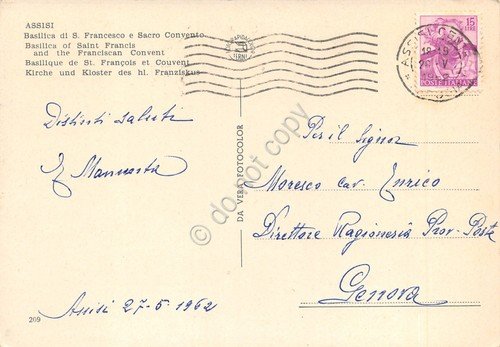 ASSISI
Basilica di S. Francesco e Sacro Convento
Basilica of Saint Francis
and the Franciscan Convent
Basilique de St. François et Couvent
Kirche und Kloster des hl. Franziskus
15
LIRE
POSTE ITALIANE
ASSISI CENTRO
Distinti saluti
Per il Signor
Moresco cav. Enrico
Direttore Ragioneria Prov. Poste
Genova
Assisi 27-5-1962
DA VERA FOTOCOLOR
209
do not copy